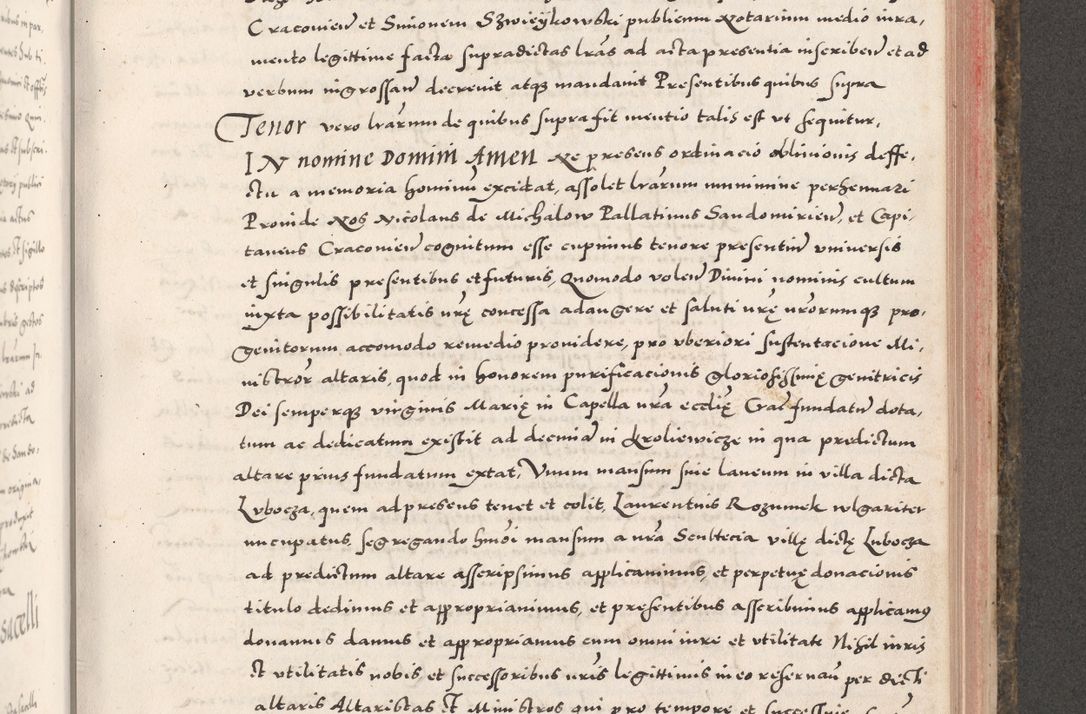 Cracovien̄ et Simonem Szwieykowski publicum Notarium medio iura,
mento legittime facta supradictas lr̄as ad acta presentia inscriben̄ et ad
verbum ingrossan̄ decrevit atqz mandavit Presentibus quibus supra
Tenor vero lr̄arum de quibus supra fit mentio talis est ut sequitur,
IN nomine Domini Amen Ne presens ordinacio oblivionis deffe,
ctu a memoria hominū excidat, assolet lr̄arum munimine perhennari
Proinde Nos Nicolaus de Michalow Pallatinus Sandomirien̄, et Capi,
taneus Cracovien̄ cognitum esse cupimus tenore presentiū universis
et singulis presentibus et futuris, Quomodo volen̄ Divini nominis cultum
iuxta possibilitatis nr̄ę concessa adaugere et saluti nr̄ę nr̄orumqz pro,
genitorum accomodo remedio providere, pro uberiori sustentacione Mi,
nistror̄ altaris, quod in honorem purificacionis gloriosissimę genitricis
Dei semperqz virginis Marię in Capella nr̄a ecclię Crac̄ fundatū dota,
tum ac dedicatum existit ad decimā in Kroliewicze in qua predictum
altare prius fundatum extat, Unum mansum sive laneum in villa dicta
Lubocza, quem ad presens tenet et colit, Laurentius Rozumek vulgariter
nuncupatus, segregando hm̄oi mansum a nr̄a Scultecia villę dictę Lubocza
ad predictum altare asscripsimus applicavimus, et perpetuę donacionis
titulo dedimus et appropriavimus, et presentibus asscribimus applicamus
donamus damus et appropriamus cum omni iure et utilitate Nihil iuris
et utilitatis nobis et successoribus nr̄is legittimis in eo reservan̄ per dicti
altaris Altaristas et Ministros qui pro tempore et successive